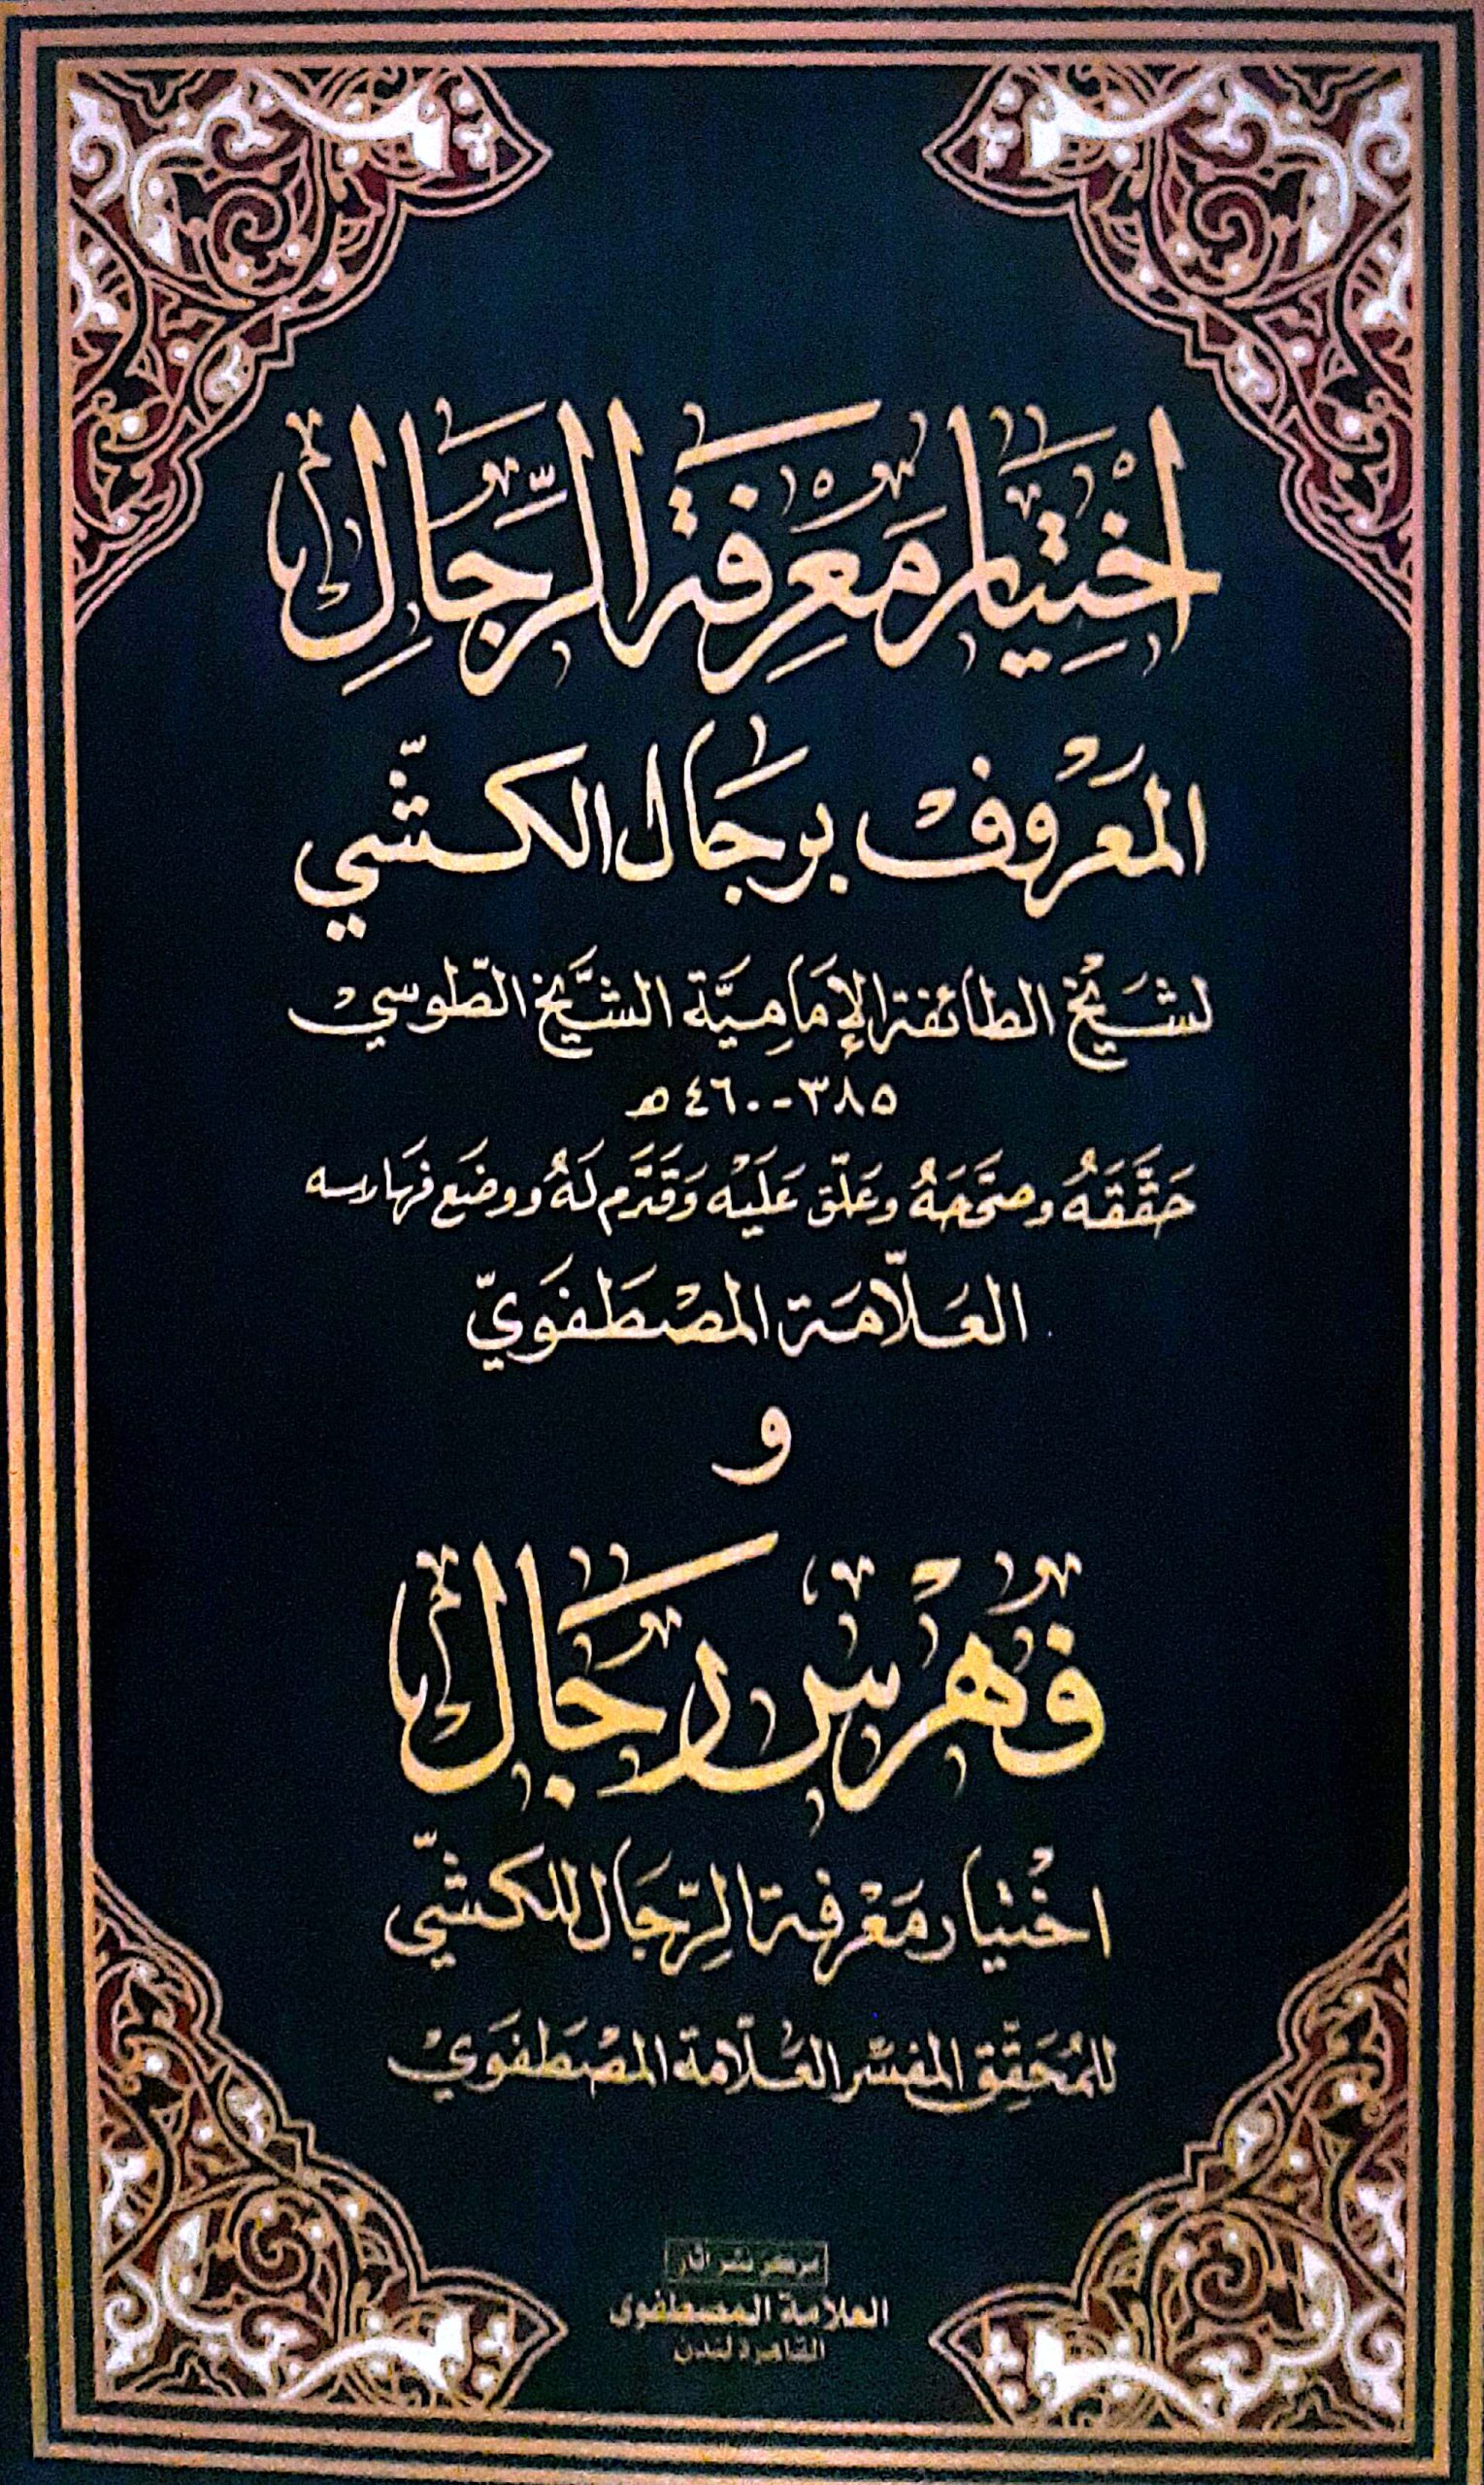 اخْتِيَار مَعْرِفَة الرِّجَالِ
المَعْرُوفْ بِرجَال الكشّي
لشَيْخ الطائفة الإمَامِيَّة الشَّيْخ الطّوسيْ
٣٨٥-٤٦٠ هـ
حَقَّقَهُ وصَحَّحَهُ وعَلّق عَلَيْه وَقَدَّم لَهُ ووضَع فَهَارسه
العَلّامَة المصْطَفَويّ
و
فهْرس رجَال
اخْتيار مَعْرفة الرِّجَال للكشّي
للمُحَقِّق المفسّر العَلّامَة المصْطَفَويْ
مركز نشر آثار
العلامة المصطفوي
القاهرة لندن